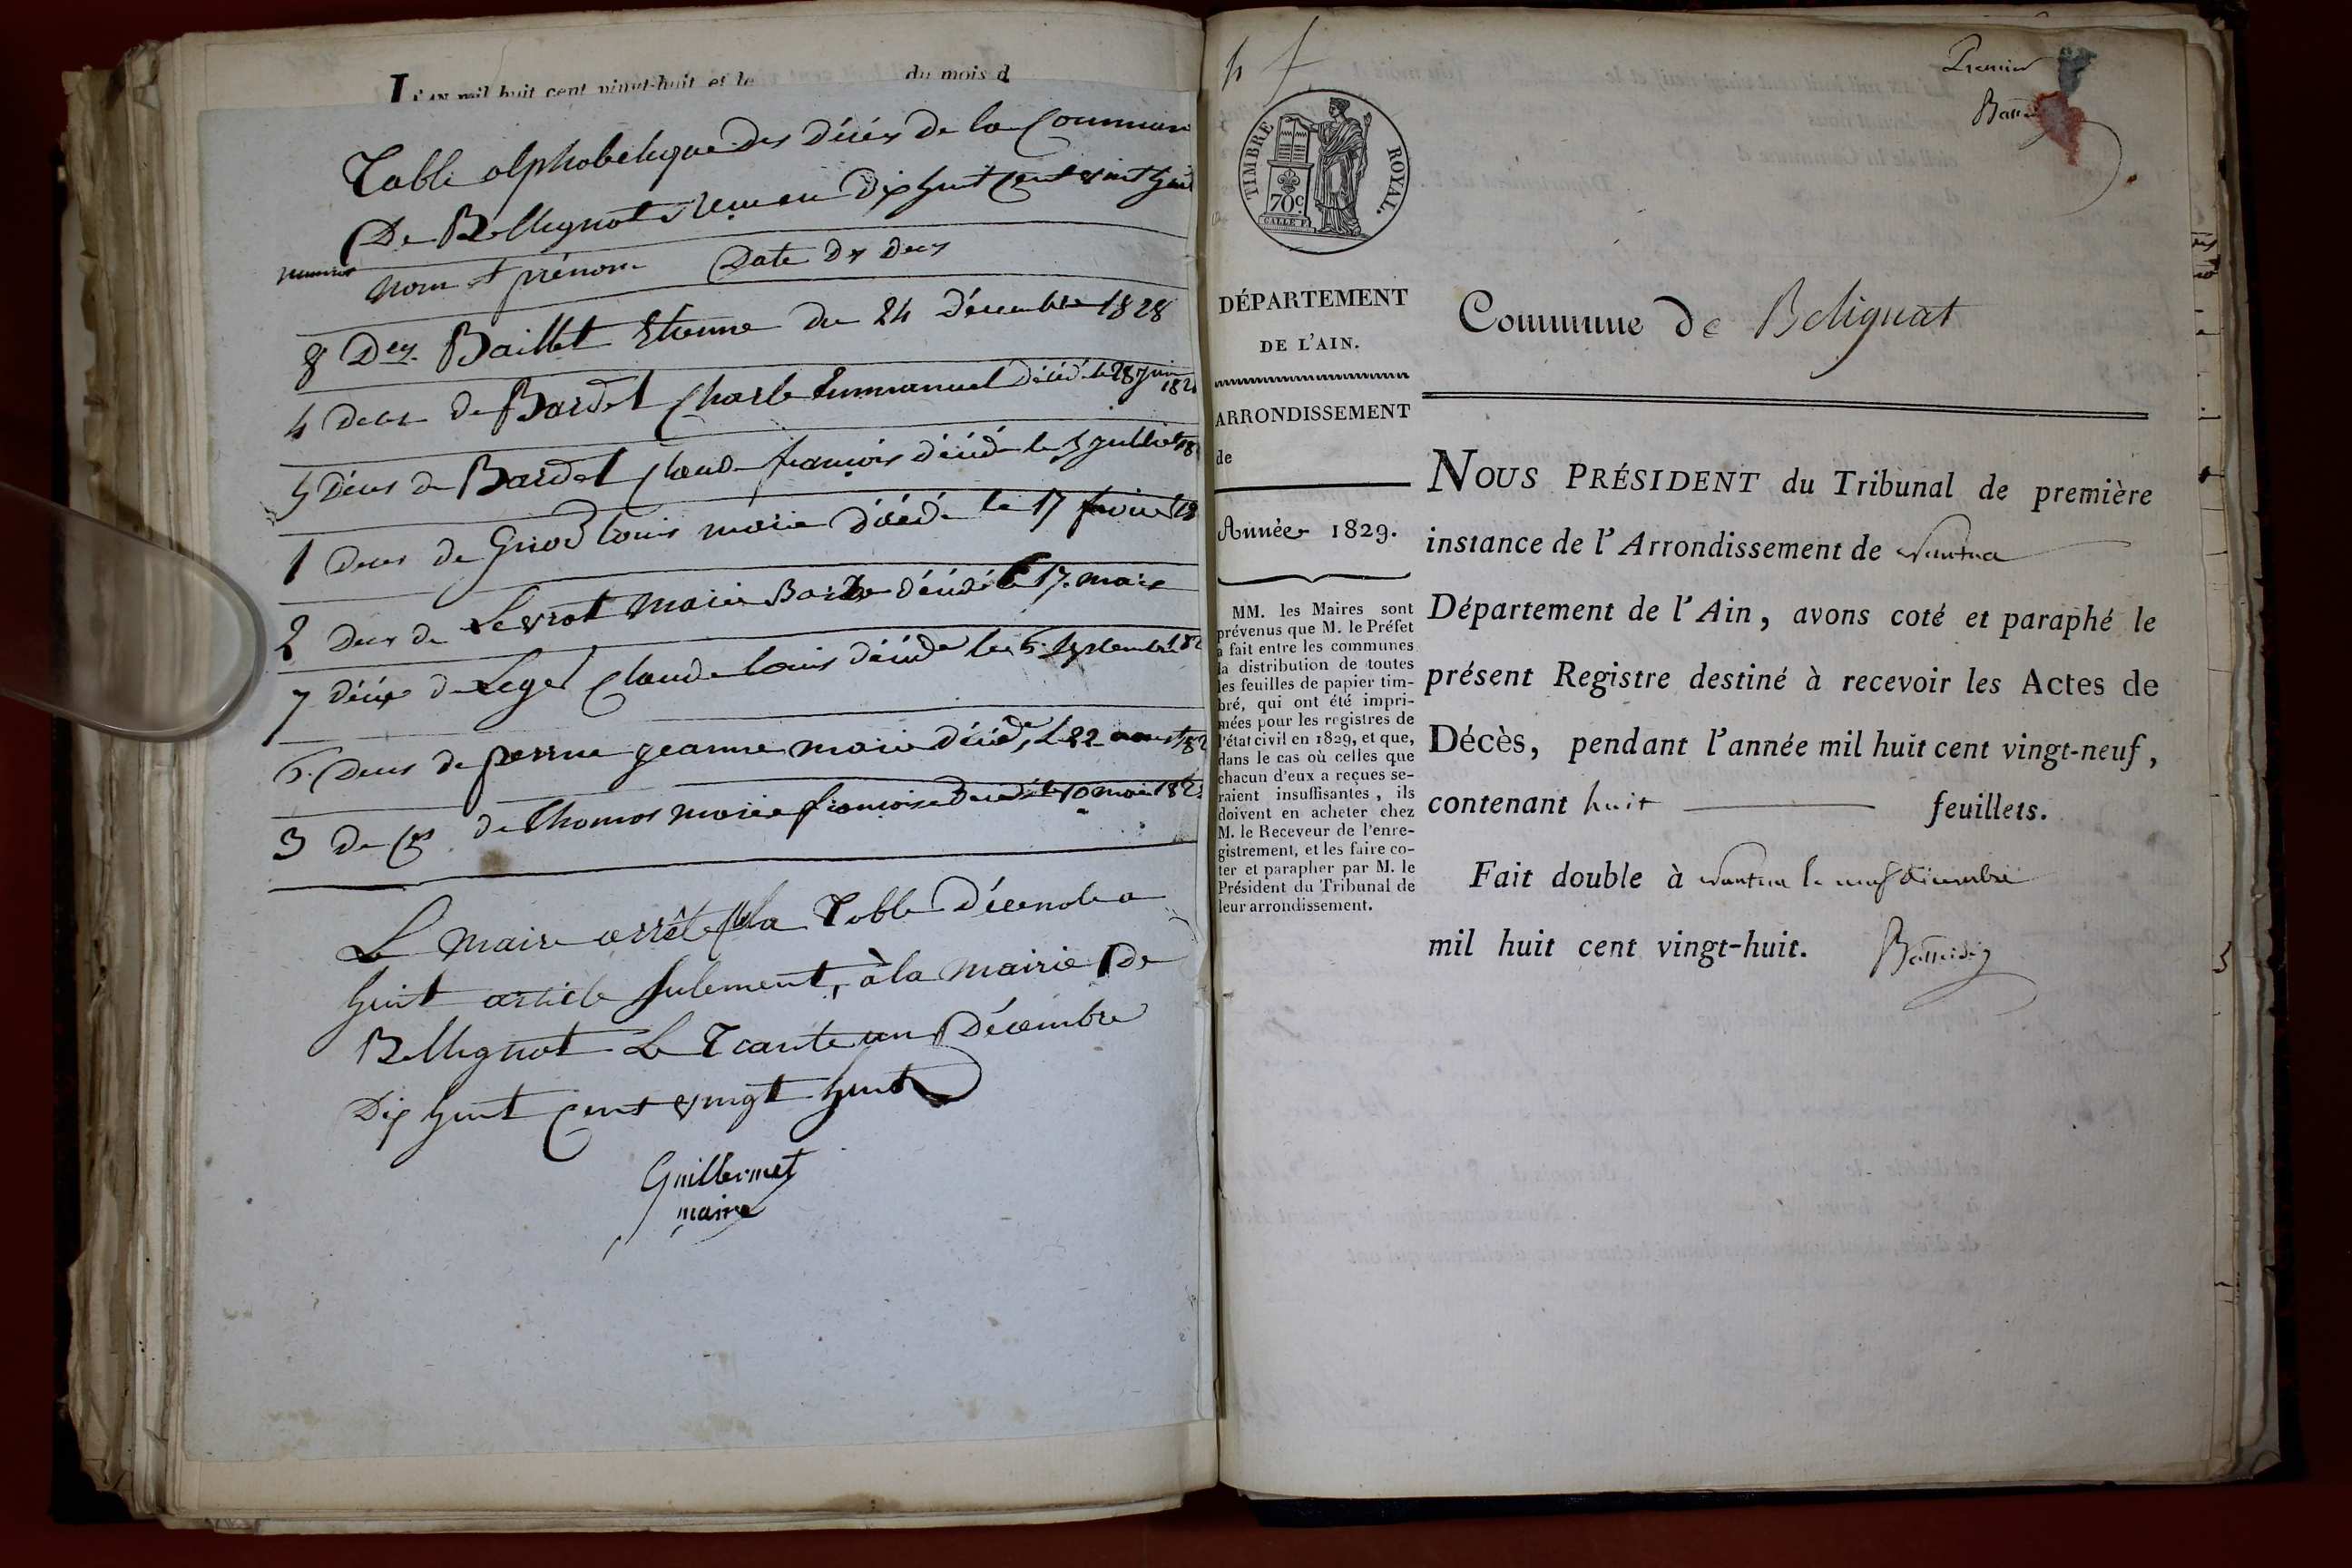 L'an mil huit cent vingt-huit et le du mois d
Table alphabetique des décès de la Commune
De Bellignat
numeros nom et prénom Date des deces
8 Des Baillet Etienne du 24 décembre 1828
4 Deces de Bardet Charle Emmanuel décédé le 28 juin
5 Déces de Bardet Claude francois décédé le 3 juillet
1 Deces de Griod louis marie décédé le 17
2 Deces de Levrat Marie décédé le 17. mars
7 décès de Leget Claude louis décédé le 6 septembre
6. Deces de perrue jeanne marie décédé, le 22
3 de thomas marie francoise décédé le 10 mai
Le Maire arrête la Table
huit article sulement, à la mairie de
Bellignat Le Trante un Décembre
Dix huit Cent vingt huit
Guillermet
maire
Premier
TIMBRE ROYAL.
70c
DÉPARTEMENT
DE L'AIN.
ARRONDISSEMENT
de
Année 1829.
MM. les Maires sont
prévenus que M. le Préfet
a fait entre les communes
la distribution de toutes
les feuilles de papier tim-
bré, qui ont été impri-
mées pour les registres de
l'état civil en 1829, et que,
dans le cas où celles que
chacun d'eux a reçues se-
raient insuffisantes, ils
doivent en acheter chez
M. le Receveur de l'enre-
gistrement, et les faire co-
ter et parapher par M. le
Président du Tribunal de
leur arrondissement.
Commune de Belignat
NOUS PRÉSIDENT du Tribunal de première
instance de l'Arrondissement de Nantua
Département de l'Ain, avons coté et paraphé le
présent Registre destiné à recevoir les Actes de
Décès, pendant l'année mil huit cent vingt-neuf,
contenant huit feuillets.
Fait double à Nantua le neuf décembre
mil huit cent vingt-huit.